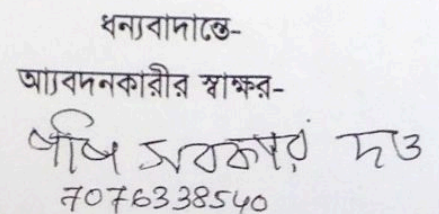 ধন্যবাদান্তে-
আবেদনকারীর স্বাক্ষর-
সরকার দত্ত
7076338540